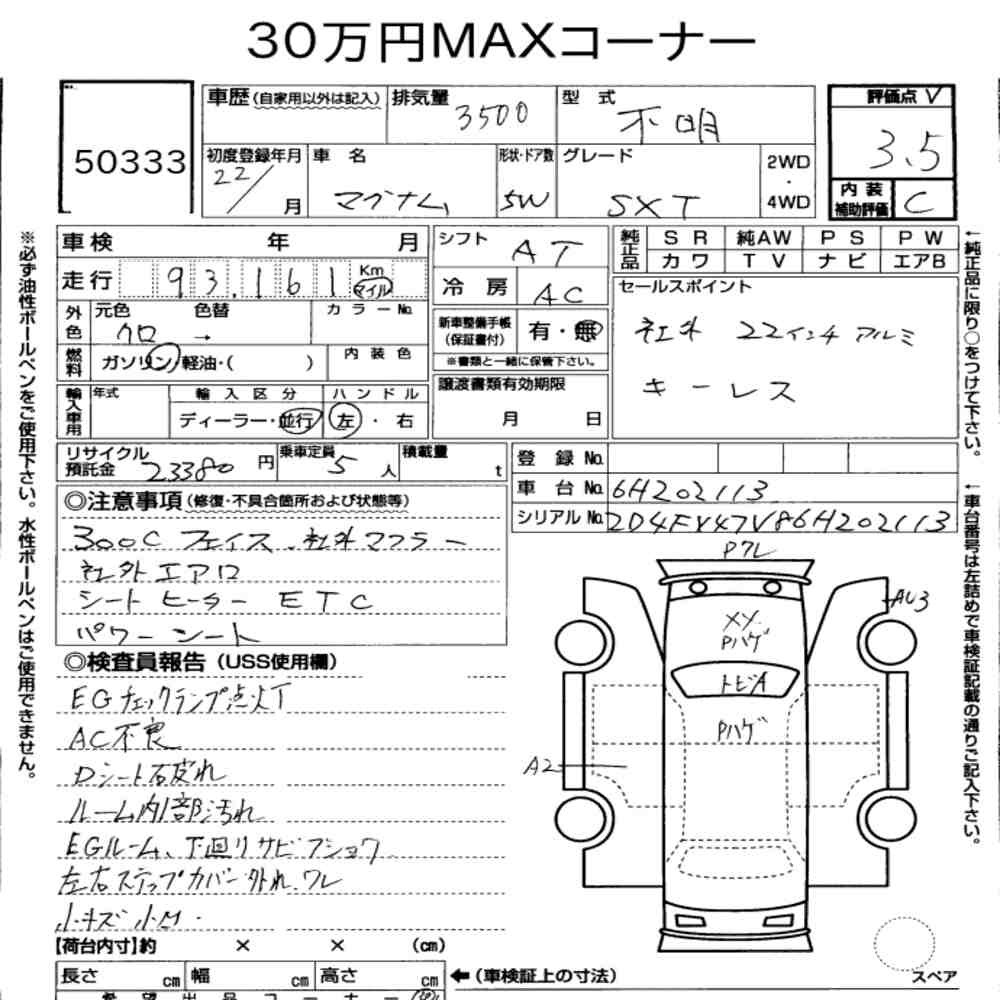 30万円MAXコーナー
50333
車歴(自家用以外は記入) 排気量 3500 型式 不明
評価点 3.5
初度登録年月 22/ 月 車名 マグナム 形状・ドア数 5W グレード SXT 2WD・4WD
内装補助評価 C
車検 年 月 シフト AT 純正品 SR 純AW PS PW
カワ TV ナビ エアB
走行 93,161 Km マイル 冷房 AC
セールスポイント
社外 22インチ アルミ
キーレス
外色 元色 クロ 色替 → カラーNo.
新車整備手帳(保証書付) 有・無
※書類と一緒に保管下さい。
燃料 ガソリン・軽油・( ) 内装色
譲渡書類有効期限 月 日
輸入車用 年式 輸入区分 ハンドル
ディーラー・並行 左・右
リサイクル預託金 23380 円 乗車定員 5 人 積載量 t
登録No.
車台No. 6H202113
シリアルNo. 2D4FY47V86H202113
◎注意事項(修復・不具合箇所および状態等)
300C フェイス、社外マフラー
社外エアロ
シートヒーター ETC
パワーシート
◎検査員報告(USS使用欄)
EGチェックランプ点灯
AC不良
Dシート石皮れ
ルーム内部汚れ
EGルーム、下回りサビフショク
左右ステップカバー外れ、ワレ
小キズ小凹・
【荷台内寸】約 × × (cm)
長さ cm 幅 cm 高さ cm ←(車検証上の寸法)
希望出品コーナー
Pワレ
AU3
XY.
Pハゲ
トビA
Pハゲ
A2
スペア
※必ず油性ボールペンをご使用下さい。水性ボールペンはご使用できません。
←純正品に限り○をつけて下さい。
←車台番号は左詰めで車検証記載の通りご記入下さい。